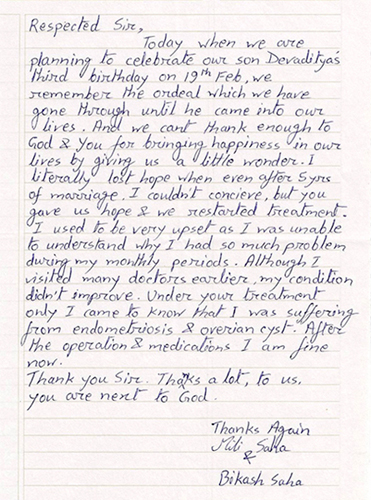 Respected Sir,
Today when we are
planning to celebrate our son Devaditya's
third birthday on 19th Feb, we
remember the ordeal which we have
gone through until he came into our
lives. And we cant thank enough to
God & you for bringing happiness in our
lives by giving us a little wonder. I
literally lost hope when even after 5yrs
of marriage, I couldn't concieve, but you
gave us hope & we restarted treatment.
I used to be very upset as I was unable
to understand why I had so much problem
during my monthly periods. Although I
visited many doctors earlier, my condition
didn't improve. Under your treatment
only I came to know that I was suffering
from endometriosis & overian cyst. After
the operation & medications I am fine
now.
Thank you Sir. Thanks a lot, to us,
you are next to God.
Thanks Again
Mili Saha
&
Bikash Saha